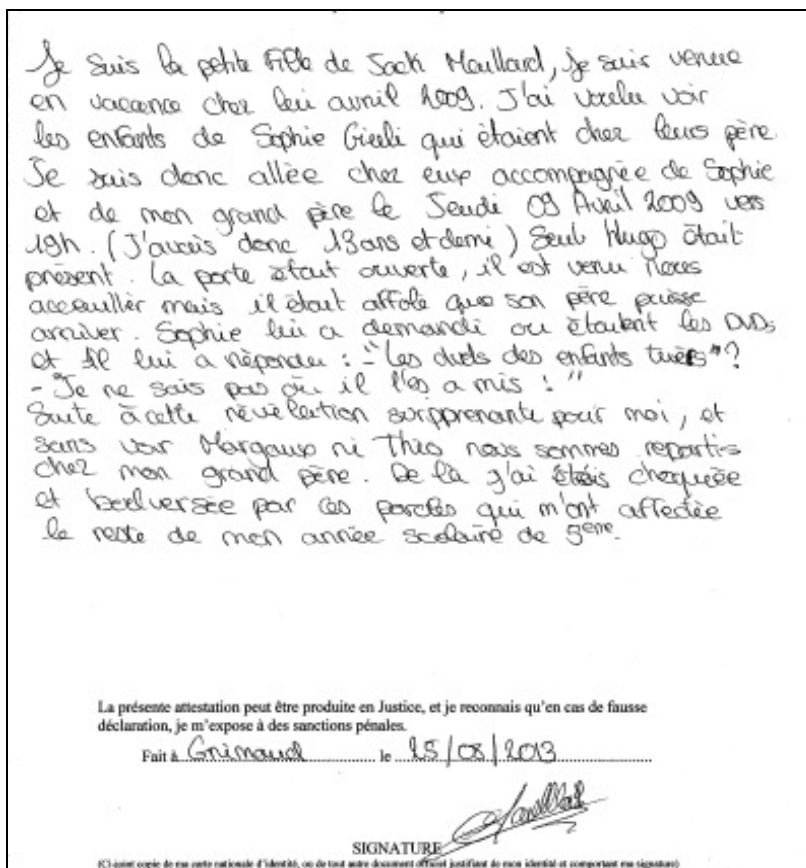 Je suis la petite fille de Jack Maillard, je suis venue
en vacance chez lui avril 2009. J'ai voulu voir
les enfants de Sophie qui étaient chez leurs père.
Je suis donc allée chez eux accompagnée de Sophie
et de mon grand père le Jeudi 09 Avril 2009 vers
19h. (J'avais donc 13 ans et demi) Seul Hugo était
présent. La porte était ouverte, il est venu nous
acceuiller mais il était affolé que son père puisse
arriver. Sophie lui a demandé ou étaient les DVDs
et il lui a répondu : - "Les dvds des enfants tués"?
- Je ne sais pas où il les a mis ! "
Suite à cette révélation surpprenante pour moi, et
sans voir Margaux ni Théo nous sommes repartis
chez mon grand père. De là j'ai étais choquée
et boulversée par ces paroles qui m'ont affectée
le reste de mon année scolaire de 5ème.
La présente attestation peut être produite en Justice, et je reconnais qu'en cas de fausse
déclaration, je m'expose à des sanctions pénales.
Fait à Grimaud le 25/08/2013
SIGNATURE
(Ci-joint copie de ma carte nationale d'identité, ou de tout autre document officiel justifiant de mon identité et comportant ma signature)